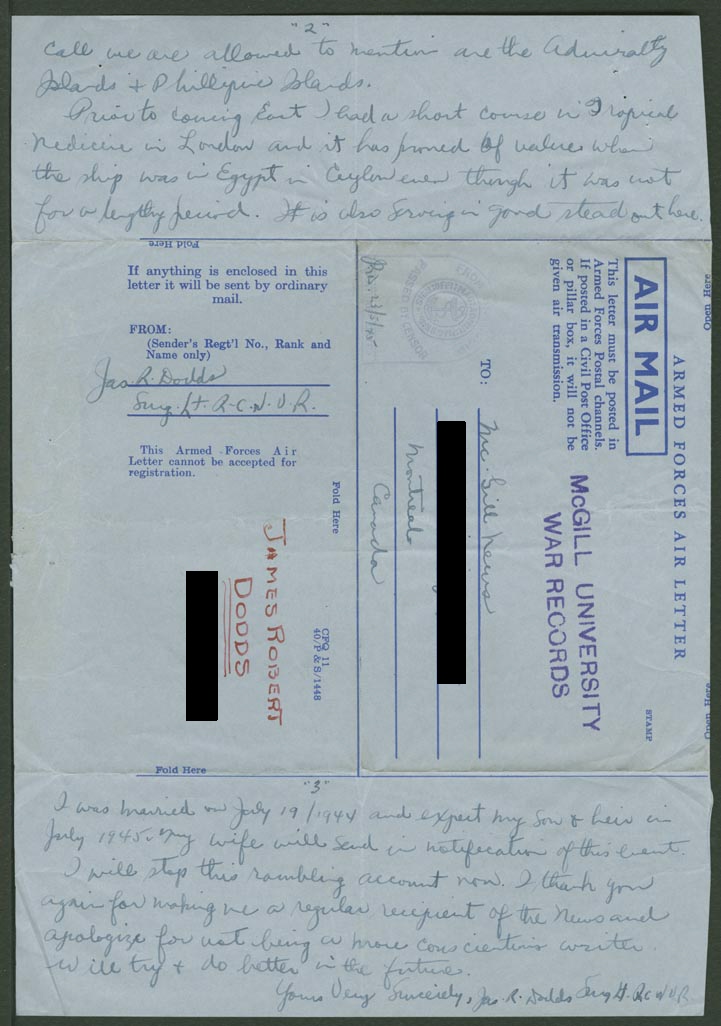 "2"
call we are allowed to mention are the Admiralty
Islands + Phillipine Islands.
Prior to coming East I had a short course in Tropical
Medicine in London and it has proned of value when
the ship was in Egypt in Ceylon even though it was not
for a lengthy period. It is also serving in good stead out here.
Fold Here
If anything is enclosed in this
letter it will be sent by ordinary
mail.
FROM:
(Sender's Regt'l No., Rank and
Name only)
Jas R. Dodds
Surg. Lt. R.C.N.V.R.
This Armed Forces Air
Letter cannot be accepted for
registration.
Fold Here
JAMES ROBERT
DODDS
CFQ 11
40/P & S/1448
Open Here
ARMED FORCES AIR LETTER
AIR MAIL
This letter must be posted in
Armed Forces Postal channels.
If posted in a Civil Post Office
or pillar box, it will not be
given air transmission.
STAMP
McGILL UNIVERSITY
WAR RECORDS
PASSED BY CENSOR
FROM
TO:
Mc.Gill News
Montreal
Canada
Open Here
Fold Here
"3"
I was married on July 19/1944 and expect my son & heir in
July 1945. My wife will send in notification of this event.
I will stop this rambling account now. I thank you
again for making me a regular recipient of the News and
apologize for not being a more conscientious writer.
Will try + do better in the future.
Yours Very Sincerely, Jas. R. Dodds Surg Lt. RCNVR